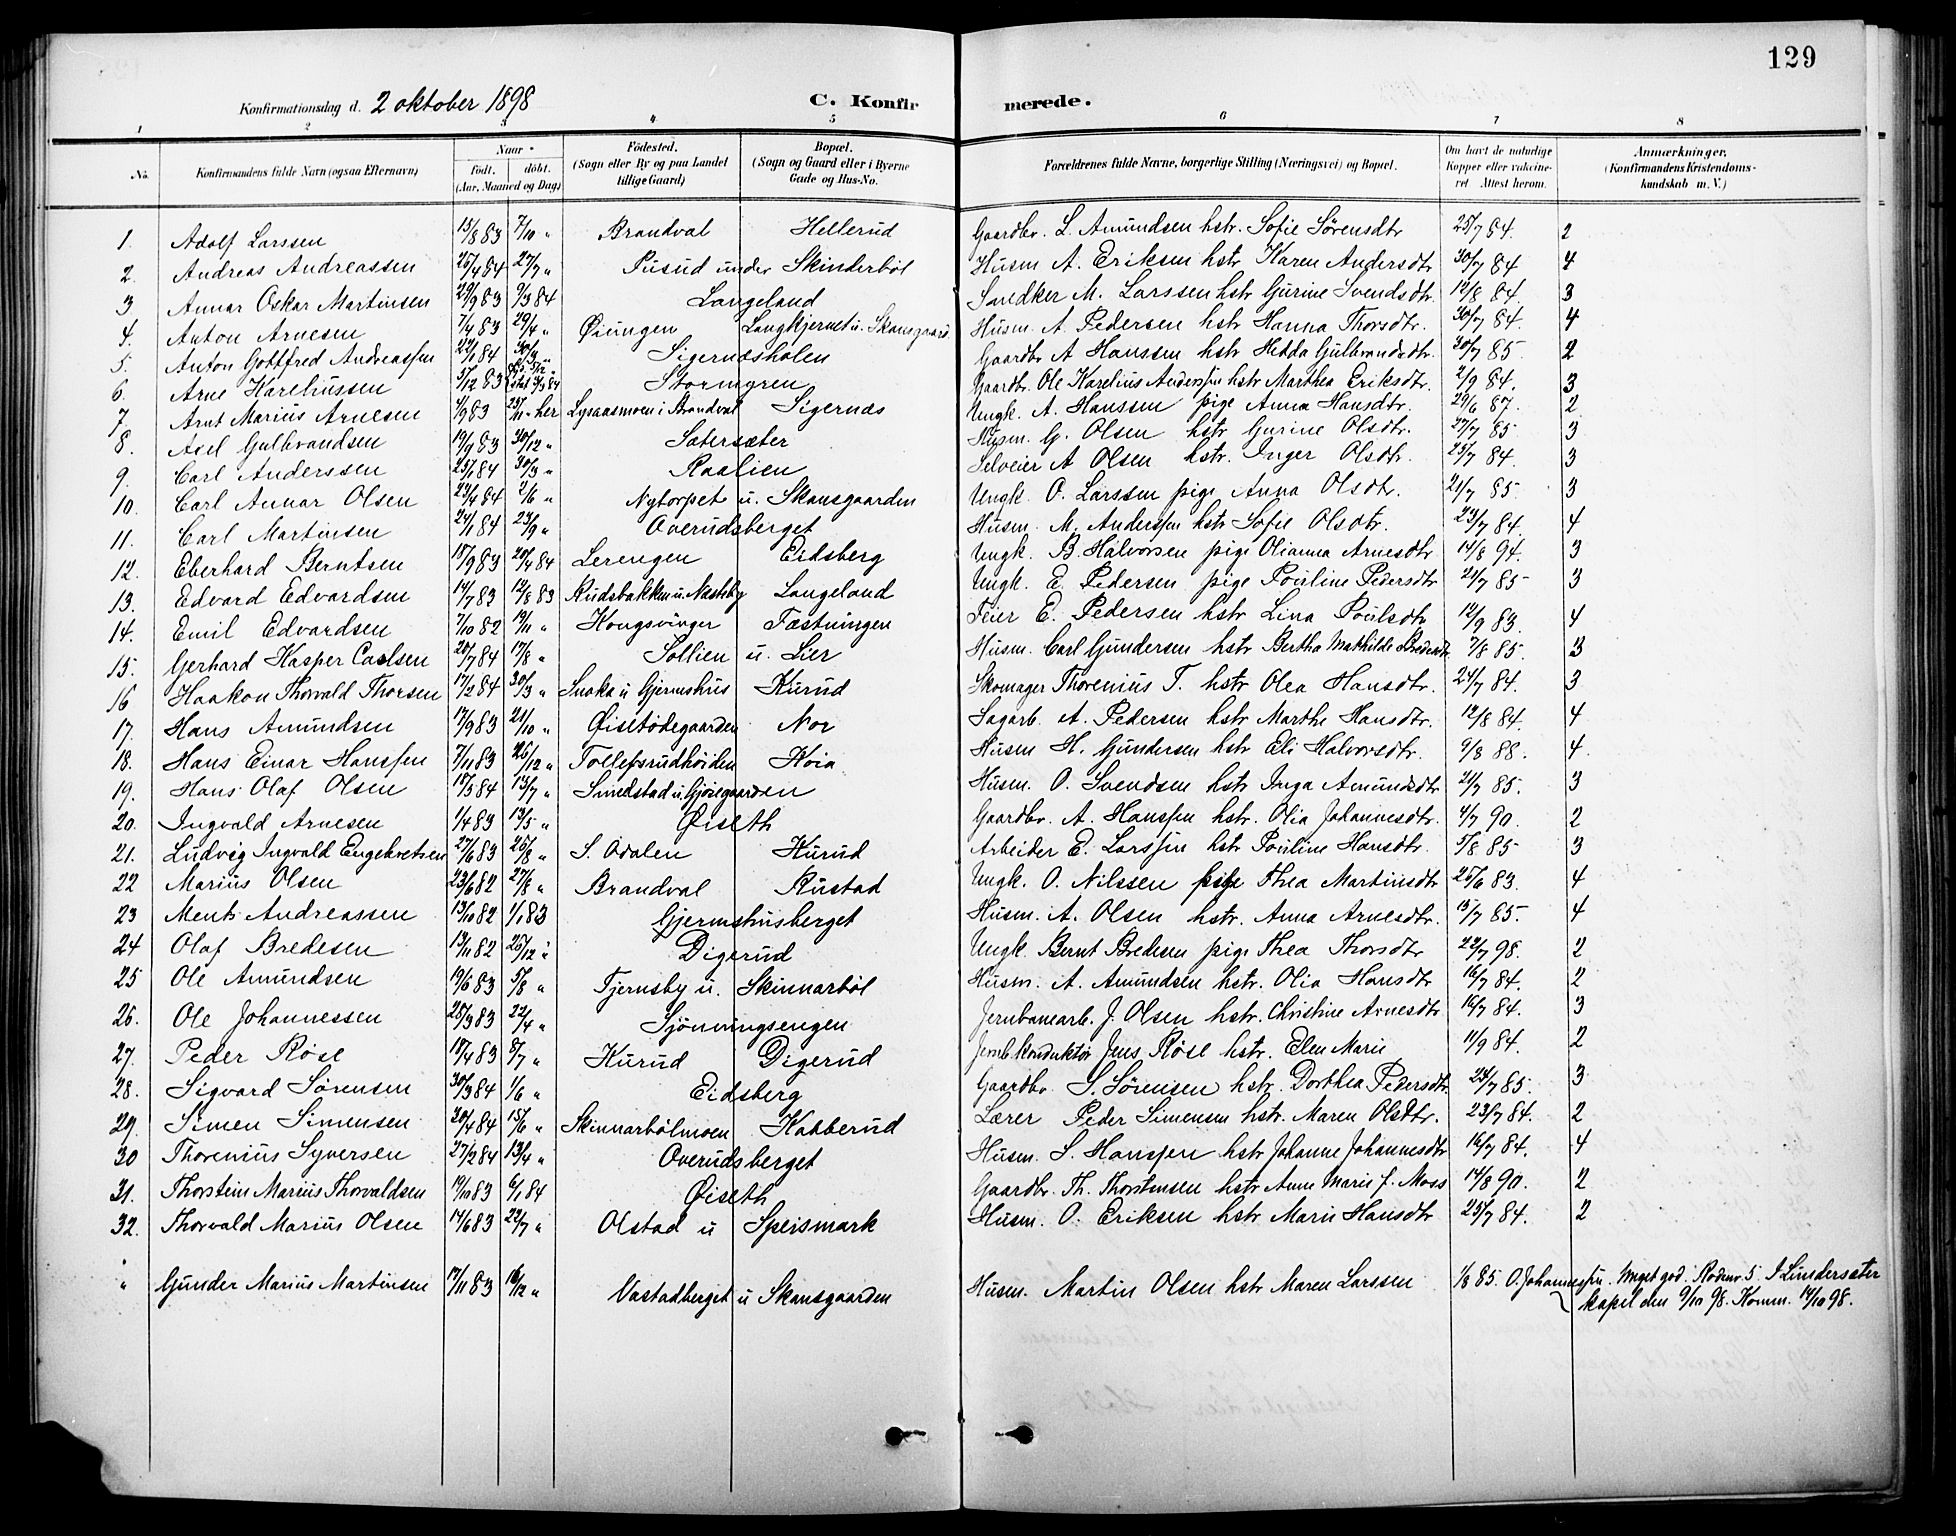 129
Konfirmationsdag d. 2 oktober 1898 C. Konfirmerede.
1 2 3 4 5 6 7 8
No. Konfirmandens fulde Navn (ogsaa Efternavn) Naar født. døbt. (Aar, Maaned og Dag) Fødested. (Sogn eller By og paa Landet tillige Gaard) Bopæl. (Sogn og Gaard eller i Byerne Gade og Hus-No. Forældrenes fulde Navne, borgerlige Stilling (Næringsvei) og Bopæl. Om havt de naturlige Kopper eller vakcineret Attest herom. Anmærkninger, (Konfirmandens Kristendomskundskab m. V.)
1. Adolf Larssen 15/8 83 7/10 " Brandval Hellerud Gaardbr. L. Amundsen hstr. Sofie Sørensdtr 25/7 84. 2
2. Andreas Andreassen 25/4 84 27/7 " Pusud under Skinderböl Husm A. Eriksen hstr Karen Andersdtr 30/7 84 4
3 Annar Oskar Martinsen 29/9 83 9/3 84 Langeland Snedker M. Larssen hstr Gurine Svendsdtr. 12/8 84. 3
4. Anton Arnesen 7/4 83 29/4 " Øiungen Langkjernet u. Skansgaard Husm. A. Pedersen hstr Hanna Thorsdtr. 30/7 84. 4
5. Anton Gottfred Andreassen 22/1 84 30/3 " Sigernæsholen Gaardbr A Hanssen hstr Hedda Gulbrandsdtr. 30/7 85. 2
6. Arne Kareliussen 5/12 83 Stormyren Gaardbr. Ole Karelius Anderssen hstr Marthea Eriksdtr. 2/9 84. 3
7. Arnt Marius Arnesen 4/9 83 25/11 " her Lysaasmoen i Brandval Sigernæs Ungk. A. Hanssen pige Anna Hansdtr. 29/6 87. 2
8. Axel Gulbrandsen 19/9 83 30/12 " Satersæter Husm. G. Olsen hstr Gurine Olsdtr. 27/7 85. 3
9. Carl Anderssen 25/1 84 30/3 " Raalien Selveier A Olsen hstr. Inger Olsdtr. 25/7 84. 3
10. Carl Annar Olsen 24/4 84 2/6 " Nytorpet u. Skansgaarden Ungk. O. Larssen pige Anna Olsdtr. 21/7 85. 3
11. Carl Martinsen 24/1 84 23/9 " Overudsberget Husm. M. Anderssen hstr Sofie Olsdtr. 23/7 84. 4
12. Eberhard Berntsen 18/9 83 20/4 84 Lerengen Eidsberg Ungk. B. Halvorsen pige Olianna Arnesdtr 14/8 94. 3
13. Edvard Edvardsen 14/7 83 12/8 83 Rudsbakken u. Næsteby Langeland Ungk. E. Pedersen pige Pouline Pedersdtr 21/7 85 3
14. Emil Edvardsen 7/10 82 19/11 " Kongsvinger Fæstningen Feier E. Pedersen hstr Lina Poulsdtr 12/9 83. 4
15. Gerhard Kasper Carlsen 20/7 84 17/8 " Sollien u. Lier Husm. Carl Gundersen hstr Bertha Mathilde Bredesdtr. 7/8 85. 3
16 Haakon Thorvald Thorsen 17/2 84 30/3 " Snoka u Gjermshus Kurud Skomager Thorenius T. hstr Olea Hansdtr. 24/7 84. 3
17. Hans Amundsen 17/9 83 21/10 " Øisetødegaarden Nor Sagarb. A. Pedersen hstr Marthe Hansdtr. 12/8 84. 4
18. Hans Einar Hanssen 7/11 83 26/12 " Tollefsrudhöiden Koia Husm H. Gundersen hstr Eli Halvorsdtr. 9/8 88. 4.
19. Hans Olaf Olsen 18/5 84 13/7 " Smedstad u. Gjöiegaarden Husm. O. Svendsen hstr Inga Amundsdtr 21/7 85. 3
20. Ingvald Arnesen 1/4 83 13/5 " Øiseth Gaardbr. A. Hanssen hstr. Olia Johannesdtr. 4/7 90. 2
21. Ludvig Ingvald Engebretsen 27/6 83 26/8 " S. Odalen Kurud Arbeider E. Larssen hstr Pouline Hansdtr. 5/8 85 3
22 Marius Olsen 23/6 82 27/8 " Brandval Rustad Ungk. O. Nilssen pige Thea Martinsdtr 25/6 83. 4
23 Ments Andreassen 13/10 82 1/1 83 Gjermshusberget Husm. A. Olsen hstr. Anna Arnesdtr. 15/7 85. 4
24 Olaf Bredesen 13/11 82 26/12 " Digerud Ungk. Bernt Bredesen pige Thea Thorsdtr 22/7 98. 2
25 Ole Amundsen 19/6 83 5/8 " Tjernsby u. Skinnarböl Husm. A. Amundsen hstr. Olia Hansdtr 16/7 84. 2
26. Ole Johannessen 28/3 83 22/4 " Sjönningsengen Jernbanearb. J. Olsen hstr. Christine Arnesdtr 16/7 84. 3
27. Peder Röse 18/4 83 8/7 " Kurud Digerud Jernb. konduktör Jens Röse hstr. Elen Marie 11/9 84. 2
28. Sigvard Sørensen 30/3 84 1/6 " Eidsberg Gaardbr S. Sørensen hstr. Dorthea Pedersdtr. 24/7 85. 3
29. Simen Simensen 20/4 84 15/6 " Skinnarbölmoen Kabberud Lærer Peder Simensen hstr. Maren Olsdtr. 23/7 84. 2
30 Thorenius Syversen 27/2 84 13/4 " Overudsberget Husm. S. Hanssen hstr Johanne Johannesdtr 16/7 84. 4
31. Thorstein Marius Thorvaldsen 19/10 83 6/1 84 Øiseth Gaardbr. Th. Thorstensen hstr Anne Marie f. Moss 14/8 90. 2
32. Thorvald Marius Olsen 17/6 83 22/7 " Olstad u Speismark Husm. O. Eriksen hstr Marie Hansdtr 25/7 84. 2
" Gunder Marius Martinsen 17/11 83 16/12 " Vastadberget u Skansgaarden Husm. Martin Olsen hstr Maren Larssen 1/8 85. O. Johannessen. Meget god. Rodenr. 5. I Lundersæter
kapel den 9/10 98. Komm. 14/10 98.